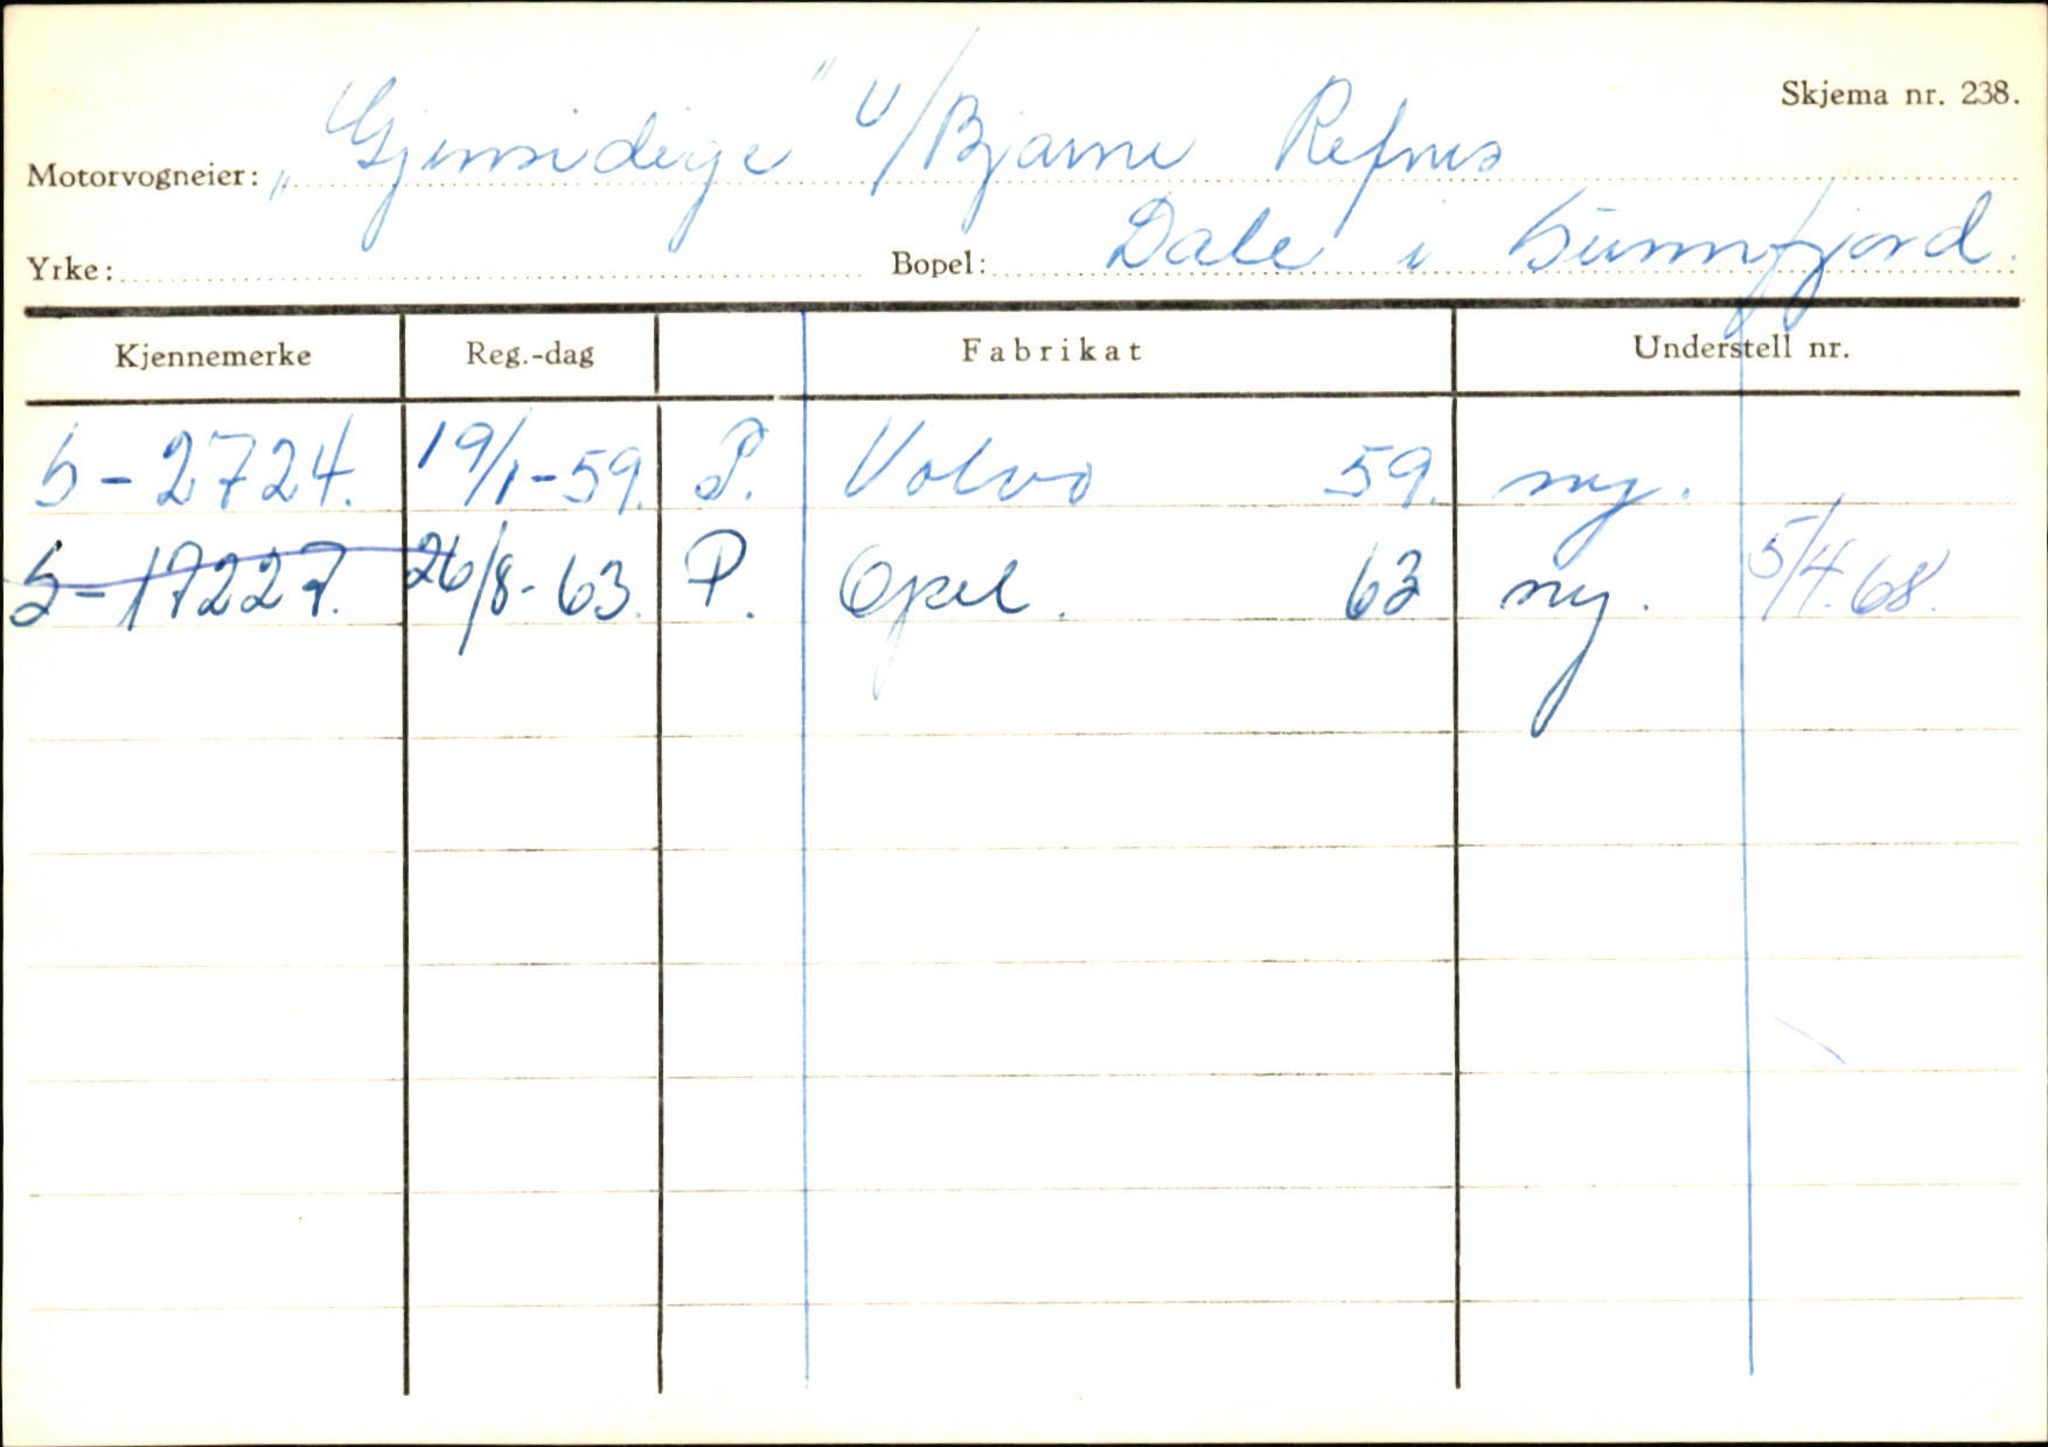 Skjema nr. 238.
Motorvogneier: „Gjensidige" v/Bjarne Refnes
Yrke: Bopel: Dale i Sunnfjord.
Kjennemerke Reg.-dag Fabrikat Understell nr.
S-2724. 19/1-59. P. Volvo 59. ny.
S-17227. 26/8-63. P. Opel. 63 ny. 5/4.68.